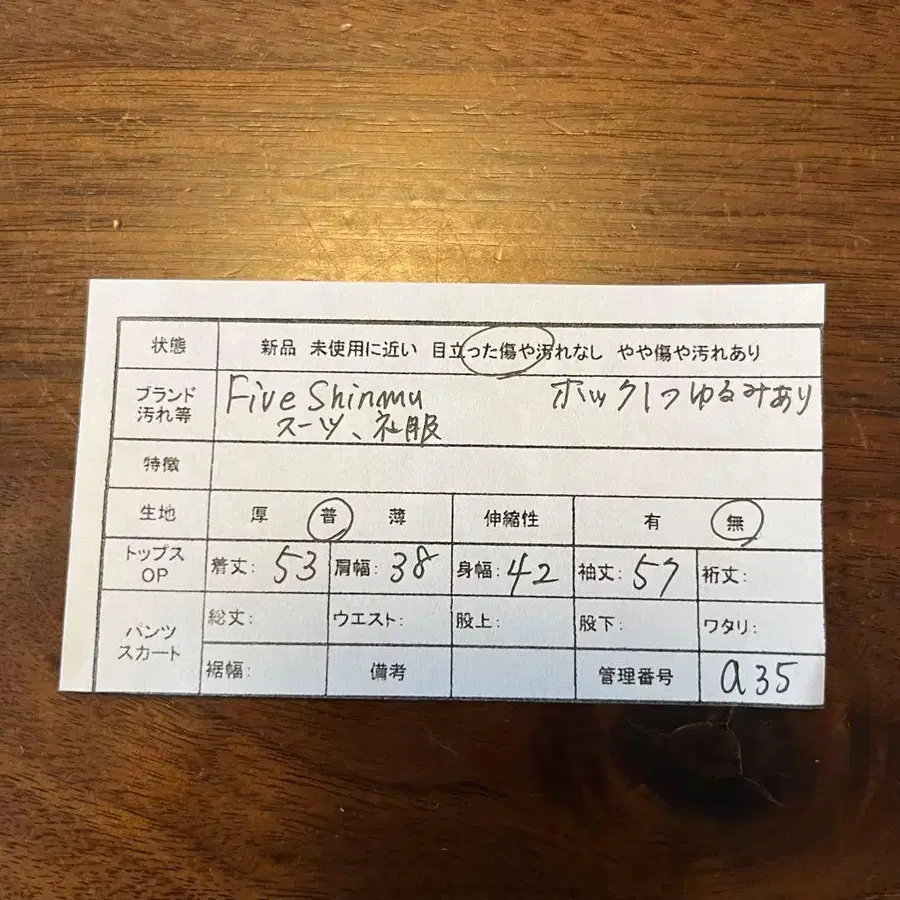 状態 新品 未使用に近い 目立った傷や汚れなし やや傷や汚れあり
ブランド 汚れ等 Five Shinmu ホック1つゆるみあり
スーツ、礼服
特徴
生地 厚 普 薄 伸縮性 有 無
トップス OP 着丈: 53 肩幅: 38 身幅: 42 袖丈: 57 裄丈:
パンツ スカート 総丈: ウエスト: 股上: 股下: ワタリ:
裾幅: 備考 管理番号 a35